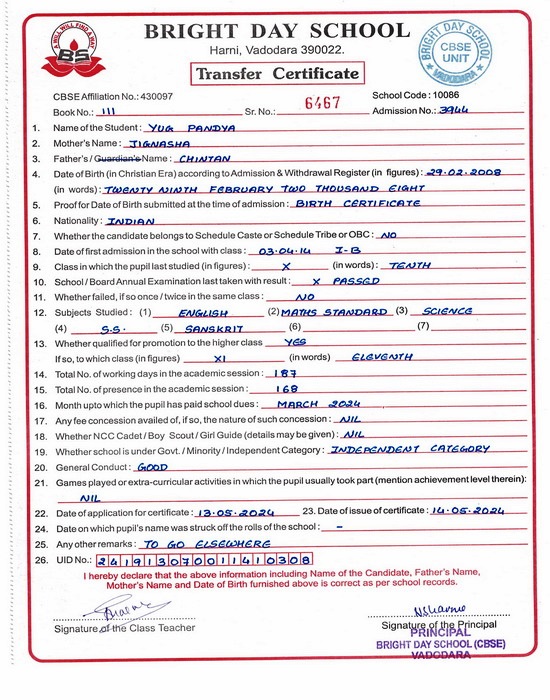 A WILL WILL FIND A WAY
BS
BRIGHT DAY SCHOOL
Harni, Vadodara 390022.
Transfer Certificate
BRIGHT DAY SCHOOL
CBSE
UNIT
VADODARA
CBSE Affiliation No.: 430097 School Code : 10086
Book No.: 111 Sr. No.: 6467 Admission No.: 3944
1. Name of the Student : YUG PANDYA
2. Mother's Name : JIGNASHA
3. Father's / Guardian's Name : CHINTAN
4. Date of Birth (in Christian Era) according to Admission & Withdrawal Register (in figures) : 29.02.2008
(in words) : TWENTY NINTH FEBRUARY TWO THOUSAND EIGHT
5. Proof for Date of Birth submitted at the time of admission : BIRTH CERTIFICATE
6. Nationality : INDIAN
7. Whether the candidate belongs to Schedule Caste or Schedule Tribe or OBC : NO
8. Date of first admission in the school with class : 03.04.14 I-B
9. Class in which the pupil last studied (in figures) : X (in words) : TENTH
10. School / Board Annual Examination last taken with result : X PASSED
11. Whether failed, if so once / twice in the same class : NO
12. Subjects Studied : (1) ENGLISH (2) MATHS STANDARD (3) SCIENCE
(4) S.S. (5) SANSKRIT (6) (7)
13. Whether qualified for promotion to the higher class YES
If so, to which class (in figures) XI (in words) ELEVENTH
14. Total No. of working days in the academic session : 187
15. Total No. of presence in the academic session : 168
16. Month upto which the pupil has paid school dues : MARCH 2024
17. Any fee concession availed of, if so, the nature of such concession : NIL
18. Whether NCC Cadet / Boy Scout / Girl Guide (details may be given) : NIL
19. Whether school is under Govt. / Minority / Independent Category : INDEPENDENT CATEGORY
20. General Conduct : GOOD
21. Games played or extra-curricular activities in which the pupil usually took part (mention achievement level therein):
NIL
22. Date of application for certificate : 13.05.2024 23. Date of issue of certificate : 14.05.2024
24. Date on which pupil's name was struck off the rolls of the school : -
25. Any other remarks : TO GO ELSEWHERE
26. UID No.: 241913070011410308
I hereby declare that the above information including Name of the Candidate, Father's Name,
Mother's Name and Date of Birth furnished above is correct as per school records.
Signature of the Class Teacher
Signature of the Principal
PRINCIPAL
BRIGHT DAY SCHOOL (CBSE)
VADODARA